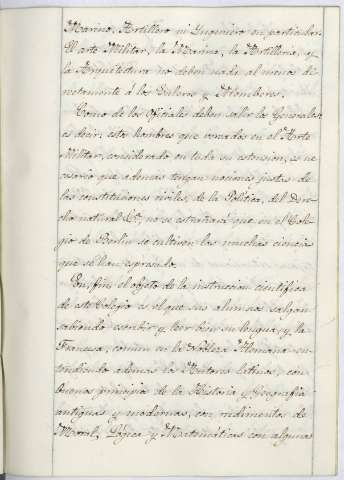 Marino, Artillero ni Ingeniero en particular.
El arte Militar, la Marina, la Artilleria, y
la Arquitectura no deben nada al menos di-
rectamente á los Euleros y Alemberes.
Como de los Oficiales deben salir los Generales
es decir, estos hombres que versados en el Arte
Militar, considerado en toda su estension, es ne-
cesario que ademas tengan nociones justas de
las constituciones civiles, de la Politica, del Dere-
cho natural &c, no se estrañará que en el Cole-
gio de Berlin se cultiven las muchas ciencias
que se han espresado.
En fin, el objeto de la instruccion cientifica
de este Colegio es el que sus alumnos salgan
sabiendo escribir y leer bien su lengua, y la
Francesa, comun en la Nobleza Alemana en-
tendiendo ademas los Autores Latinos, con
buenos principios de la Historia y Geografia
antiguas y modernas, con rudimentos de
Moral, Lógica y Matemáticas con algunas